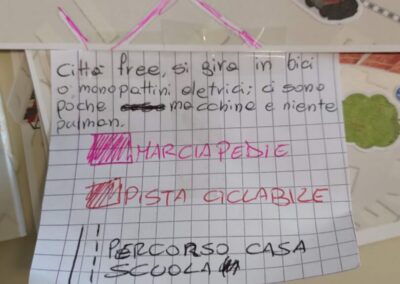 Città free, si gira in bici
o monopattini eletrici; ci sono
poche macchine e niente
pulman.
MARCIAPEDIE
PISTA CICLABILE
PERCORSO CASA
SCUOLA